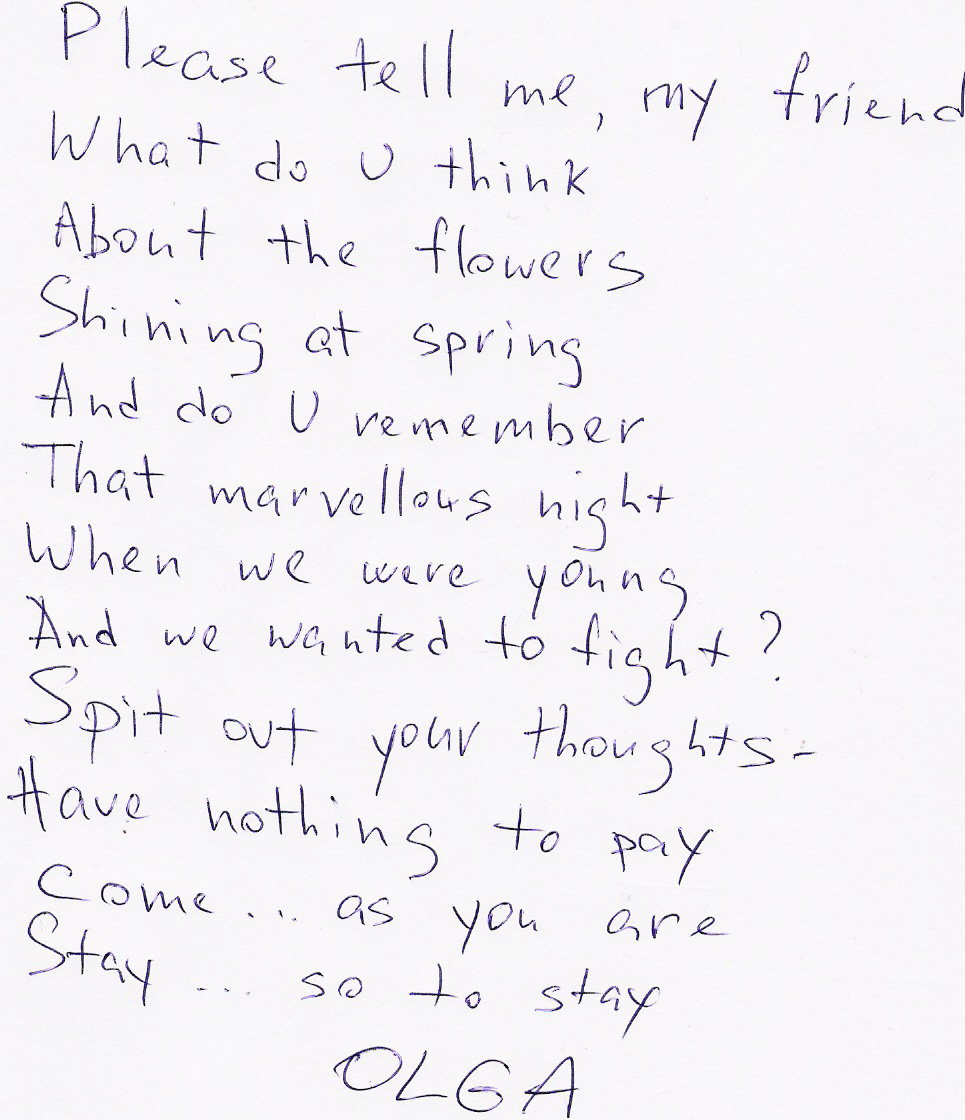 Please tell me, my friend
What do U think
About the flowers
Shining at spring
And do U remember
That marvellous night
When we were young
And we wanted to fight?
Spit out your thoughts -
Have nothing to pay
Come... as you are
Stay ... so to stay
OLGA